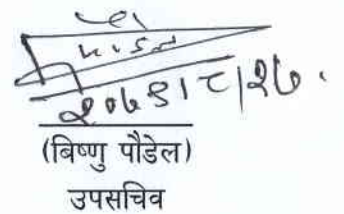 २०७९।८।२७.
(बिष्णु पौडेल)
उपसचिव